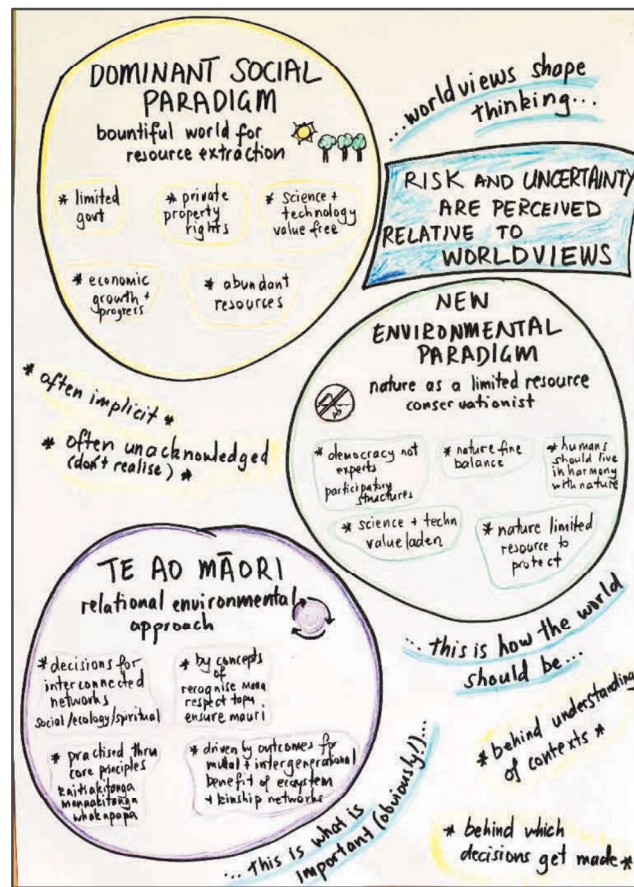 DOMINANT SOCIAL
PARADIGM
bountiful world for
resource extraction
* limited
govt
* private
property
rights
* science +
technology
value free
* economic
growth +
progress
* abundant
resources
...worldviews shape
thinking...
RISK AND UNCERTAINTY
ARE PERCEIVED
RELATIVE TO
WORLDVIEWS
NEW
ENVIRONMENTAL
PARADIGM
nature as a limited resource
conservationist
* democracy not
experts
participatory
structures
* nature fine
balance
* humans
should live
in harmony
with nature
* science + techn
value laden
* nature limited
resource to
protect
* often implicit *
* often unacknowledged
(don't realise) *
TE AO MĀORI
relational environmental
approach
* decisions for
interconnected
networks
social/ecology/spiritual
* by concepts
of
recognise mana
respect tapu
ensure mauri
* practised thru
core principles
kaitiakitanga
manaakitanga
whakapapa
* driven by outcomes for
mutal + intergenerational
benefit of ecosystem
+ kinship networks
...this is how the world
should be...
* behind understanding
of contexts *
...this is what is
important (obviously!)...
* behind which
decisions get made *